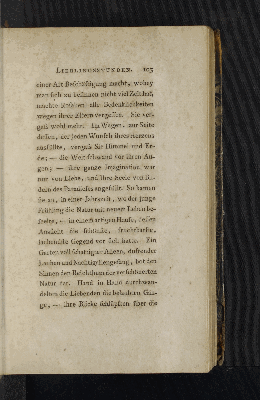 LIEBLINGSSTUNDEN. 103
einer Art Beschäftigung macht, wobey
man sich zu besinnen nicht viel Zeit hat,
machte Rosalien alle Bedenklichkeiten
wegen ihrer Eltern vergessen. Sie ver-
gaſs wohl mehr. Im Wagen, zur Seite
dessen, der jeden Wunsch ihres Herzens
ausfüllte, vergaſs sie Himmel und Er-
de; — die Welt schwand vor ihren Au-
gen; — ihre ganze Imagination war
nur von Liebe, und ihre Seele von Bil-
dern des Paradieses angefüllt. So kamen
sie an, in einer Jahrszeit, wo der junge
Frühling die Natur mit neuem Leben be-
seelte, — in einem artigen Hause, dessen
Aussicht die schönste, fruchtbarste,
lachendste Gegend vor sich hatte. Ein
Garten voll schattigter Alleen, duftender
Lauben und Nachtigallengesang, bot den
ihnen den Reichthum der verschönerten
Natur dar. Hand in Hand durchwan-
delten die Liebenden die belaubten Gän-
ge, — ihre Blicke schlüpften über die